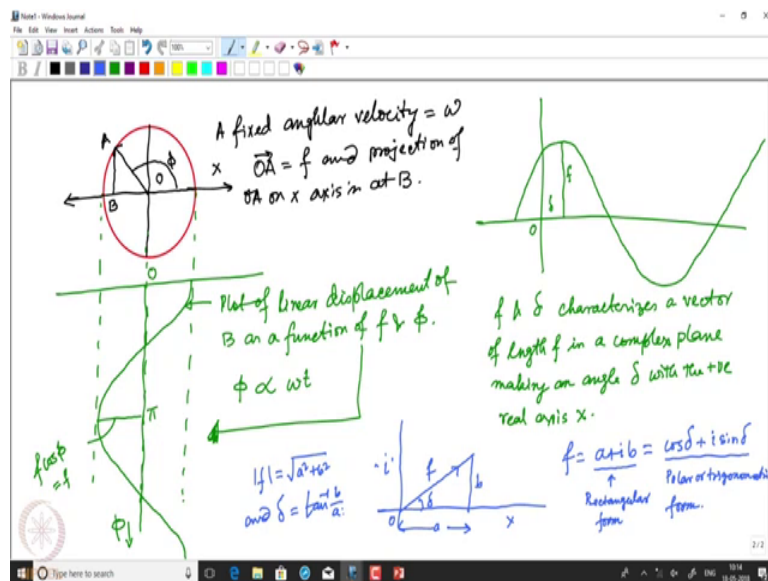 Note1 - Windows Journal
File Edit View Insert Actions Tools Help
100%
B I
A fixed anghlar velocity = ω
OA = f and projection of
OA on x axis in at B.
A
φ
O
X
B
O
Plot of linear displacement of
B as a function of f & φ.
φ ∝ ωt
π
f cosφ
= f
φ↓
f
δ
O
f & δ characterizes a vector
of length f in a complex plane
making an angle δ with the +ve
real axis x.
|f| = √a²+b²
and δ = tan⁻¹ b/a
'i'
f
b
δ
O
a
x
f = a+ib = cosδ + i sinδ
↑
Rectangular
form
Polar or trigonometric
form.
2/2
Type here to search
ENG
10:14
18-05-2018